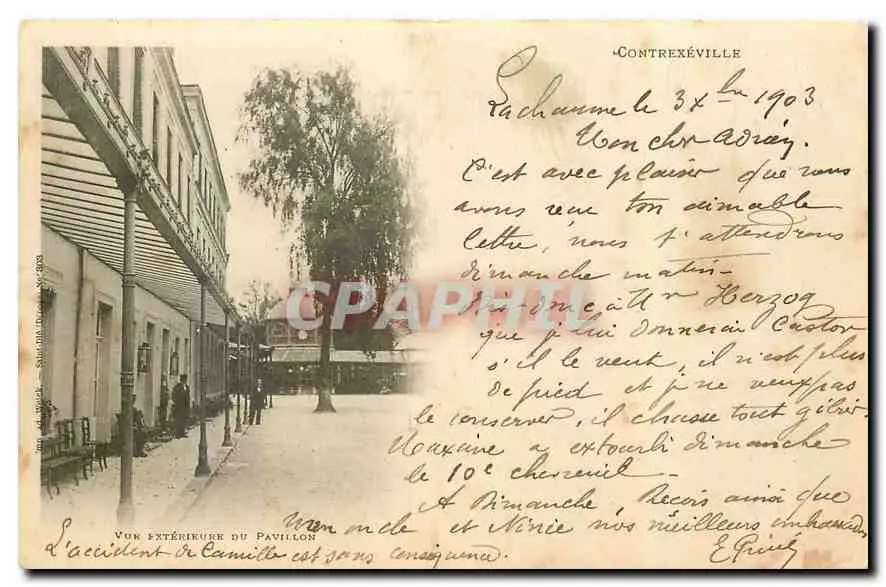 CONTREXÉVILLE
Lachaume le 3 Xbre 1903
Mon cher Adrien.
C'est avec plaisir que nous
avons reçu ton aimable
lettre, nous t'attendrons
dimanche matin -
Dis donc à Mr Herzog
que je lui donnerai Castor
s'il le veut, il n'est plus
de pied et je ne veux pas
le conserver, il chasse tout gibier
a dimanche
le 10e chevreuil -
A Dimanche, Reçois ainsi que
mon oncle et Ninie nos meilleurs embrassades
L'accident de Camille est sans conséquence.
VUE EXTÉRIEURE DU PAVILLON
Imp. Ad. Weick. - Saint-Dié No 303
CPARAMA.COM